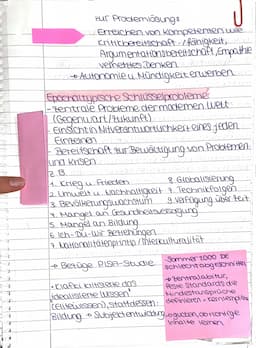 zur Problemlösung:
→ Erreichen von Kompetenzen wie
Kritikbereitschaft-/fähigkeit,
Argumentationsbereitschaft, Empathie
vernetztes Denken
→ Autonomie u. Mündigkeit erwerben
Epochaltypische Schlüsselprobleme
- zentrale Probleme der modernen Welt
(Gegenwart/Zukunft)
- Einsicht in Mitverantwortlichkeit eines jeden
Einzelnen
- Bereitschaft zur Bewältigung von Problemen
und Krisen
z.B.
1. Krieg u. Frieden 8. Globalisierung
2. Umwelt u. Nachhaltigkeit 9. Technikfolgen
3. Bevölkerungswachstum 9. Verfügung über Zeit
4. Mangel an Gesundheitsversorgung
5. Mangel an Bildung
6. Ich-Du-Wir Beziehungen
7. Nationalitätenprinzip / Interkulturalität
→ Bezüge PISA-Studie
• Klafki kritisierte das
idealisierte Wissen
(Elitewissen), stattdessen:
Bildung → Subjektentwicklung
Sommer 2000 DE
schlecht abgeschnitten
→ Zentralabitur,
feste Standards, die
Mindestanforderung
definieren
Inhalte lernen